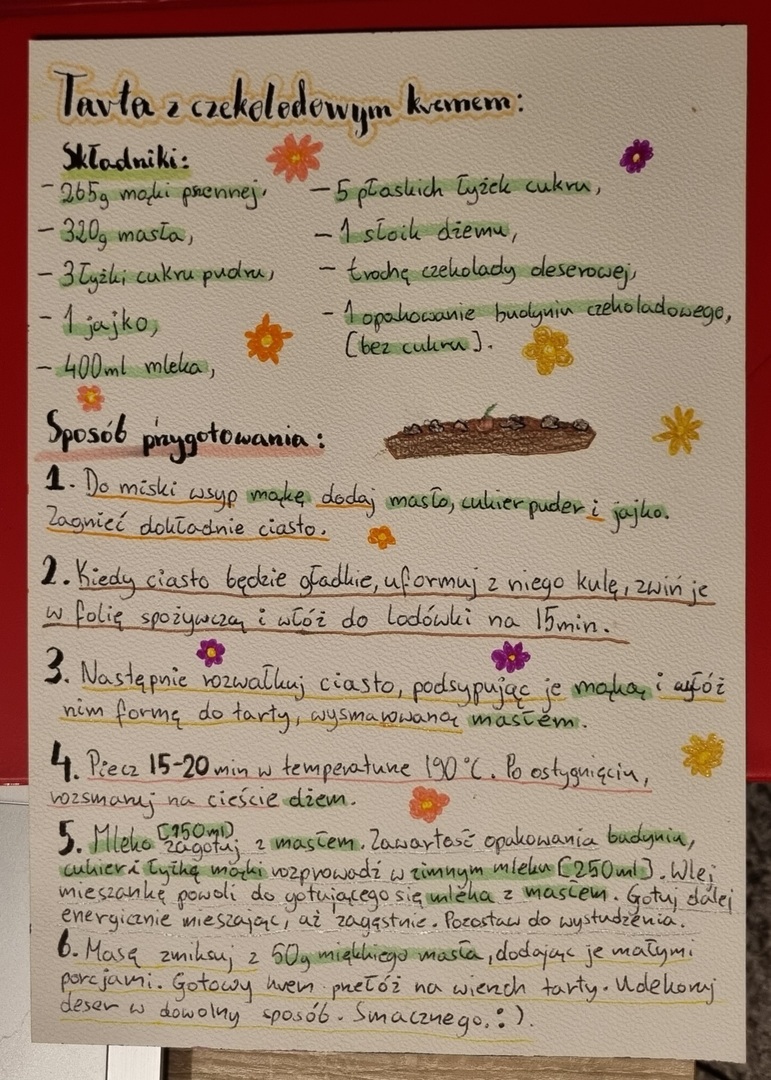 Tarta z czekoladowym kremem:
Składniki:
- 265g mąki pszennej,
- 320g masła,
- 3 łyżki cukru pudru,
- 1 jajko,
- 400ml mleka,
- 5 płaskich łyżek cukru,
- 1 słoik dżemu,
- trochę czekolady deserowej,
- 1 opakowanie budyniu czekoladowego,
[bez cukru].
Sposób przygotowania:
1. Do miski wsyp mąkę dodaj masło, cukier puder i jajko.
Zagnieć dokładnie ciasto.
2. Kiedy ciasto będzie gładkie, uformuj z niego kulę, zwiń je
w folię spożywczą i włóż do lodówki na 15min.
3. Następnie rozwałkuj ciasto, podsypując je mąką i wyłóż
nim formę do tarty, wysmarowaną masłem.
4. Piecz 15-20 min w temperaturze 190°C. Po ostygnięciu,
rozsmaruj na cieście dżem.
5. Mleko [150ml] zagotuj z masłem. Zawartość opakowania budyniu,
cukier i łyżkę mąki rozprowadź w zimnym mleku [250ml]. Wlej
mieszankę powoli do gotującego się mleka z masłem. Gotuj dalej
energicznie mieszając, aż zagęstnie. Pozostaw do wystudzenia.
6. Masę zmiksuj z 50g miękkiego masła, dodając je małymi
porcjami. Gotowy krem przełóż na wierzch tarty. Udekoruj
deser w dowolny sposób. Smacznego. :).